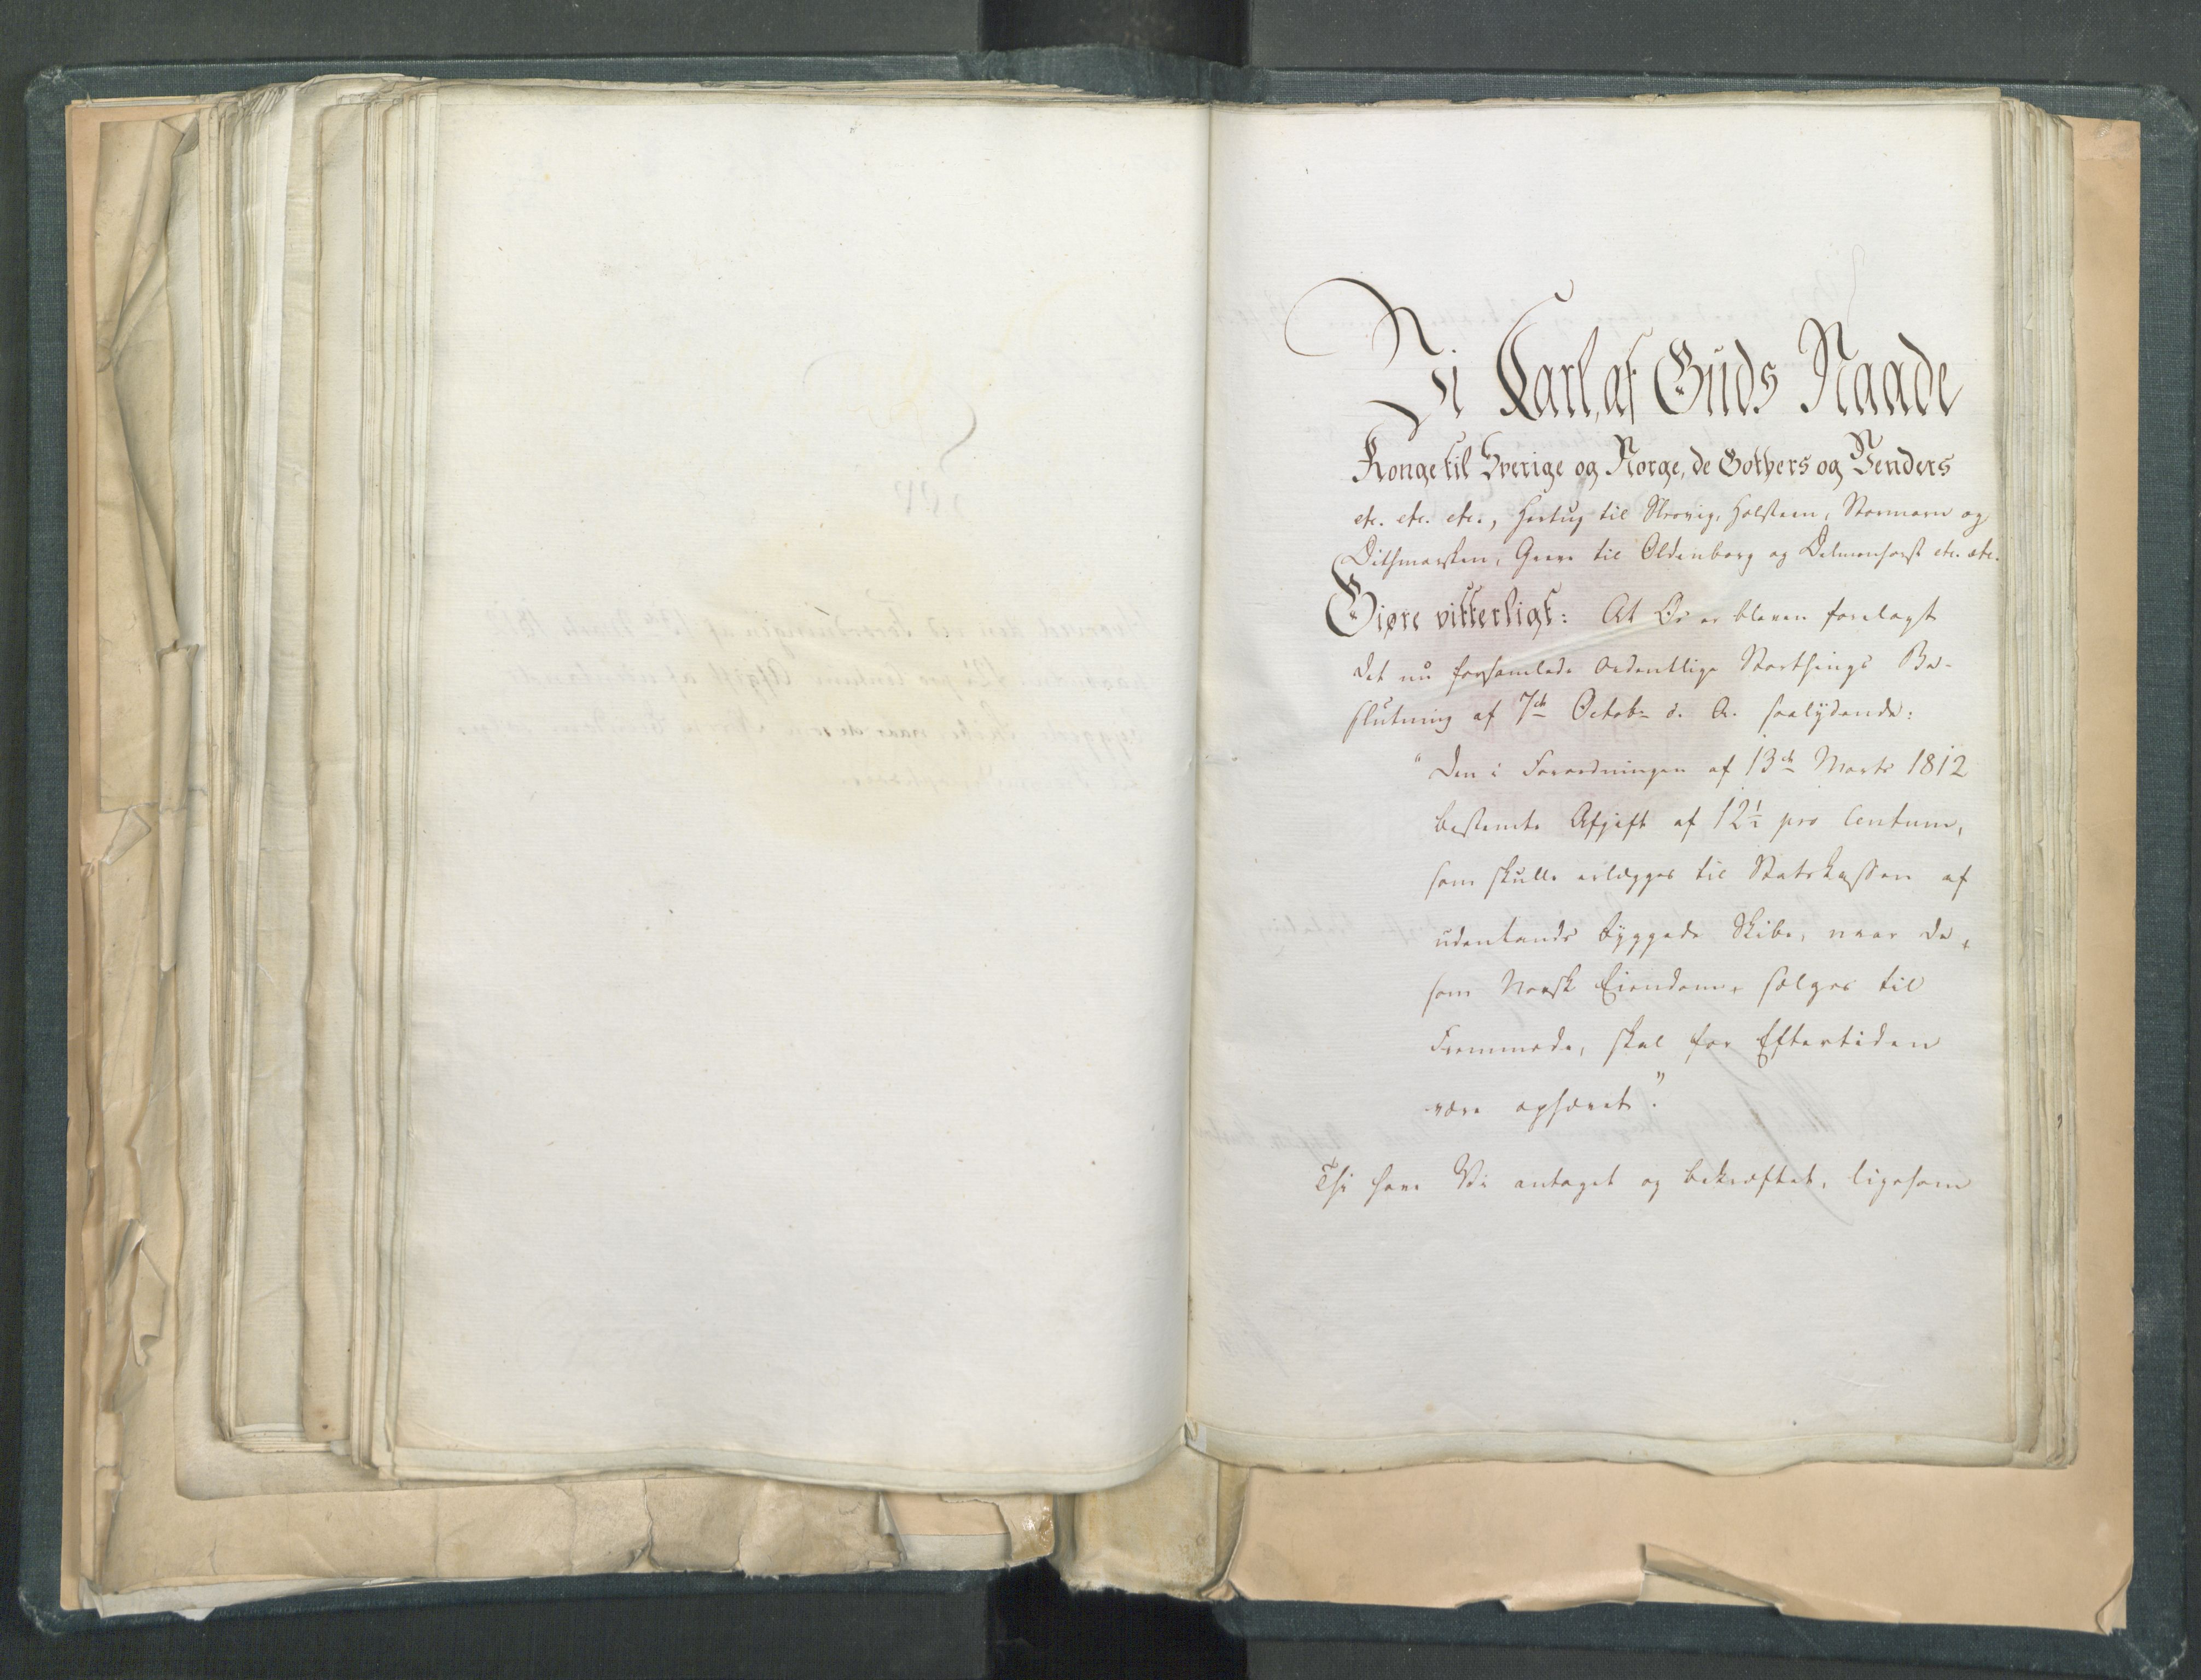 Vi Carl, af Guds Naade
Konge til Sverige og Norge, de Gothers og Venders
etc. etc. etc., Hertug til Slesvig, Holsteen, Stormarn og
Dithmarsken, Greve til Oldenborg og Delmenhorst etc. etc.
Giøre vitterligt: At Os er bleven forelagt
det nu forsamlede ordentlige Storthings Be-
slutning af 7de Octobr d. A. saalydende:
"Den i Forordningen af 13de Marts 1812
bestemte Afgift af 12½ pro Centum,
som skulle erlægges til Statskassen af
udenlands byggede Skibe, naar de,
som Norsk Eiendom, sælges til
Fremmede, skal for Eftertiden
være ophævet".
Thi have Vi antaget og bekræftet, ligesom